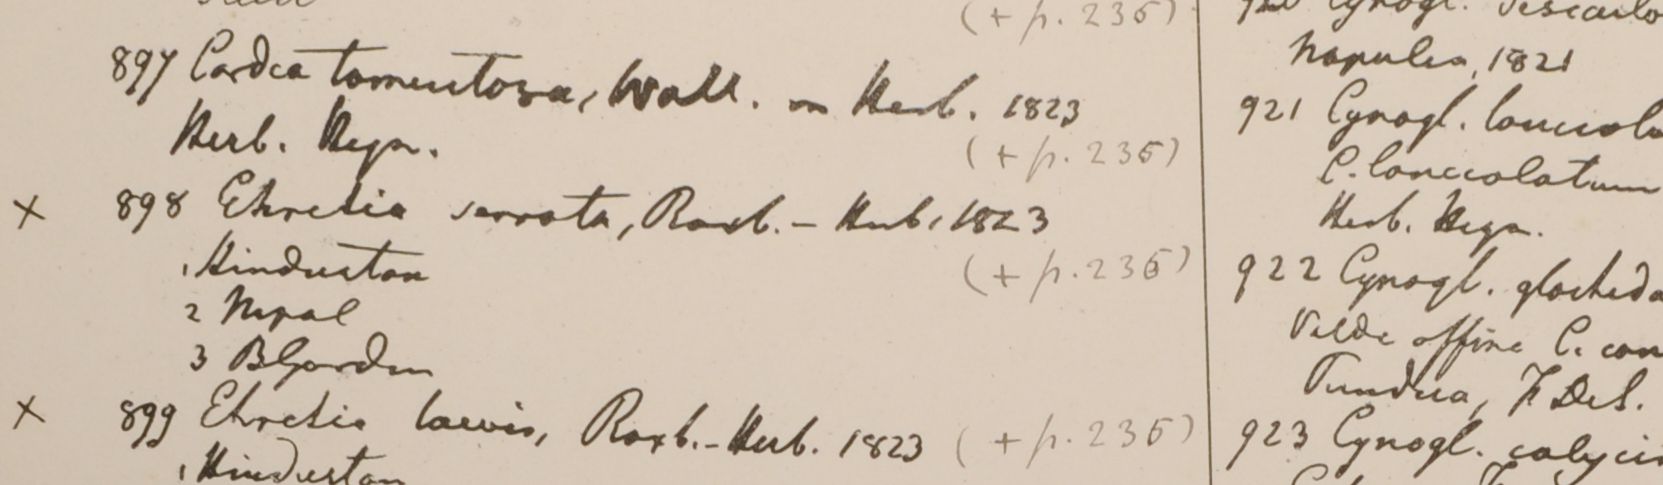 (+ p. 236)
897 Cordia tomentosa, Wall. in Herb. 1823
Herb. Heyn.
(+ p. 236)
× 898 Ehretia serrata, Roxb. – Herb. 1823
1 Hindustan
(+ p. 236)
2 Nipal
3 B Garden
× 899 Ehretia laevis, Roxb. – Herb. 1823 (+ p. 236)
1 Hindustan
920 Cynogl.
Napulia, 1821
921 Cynogl. lanceola
C. lanceolatum
Herb. Heyn.
922 Cynogl. glochida
Valde affine C. can
Pundua, F. DeS.
923 Cynogl. calyci